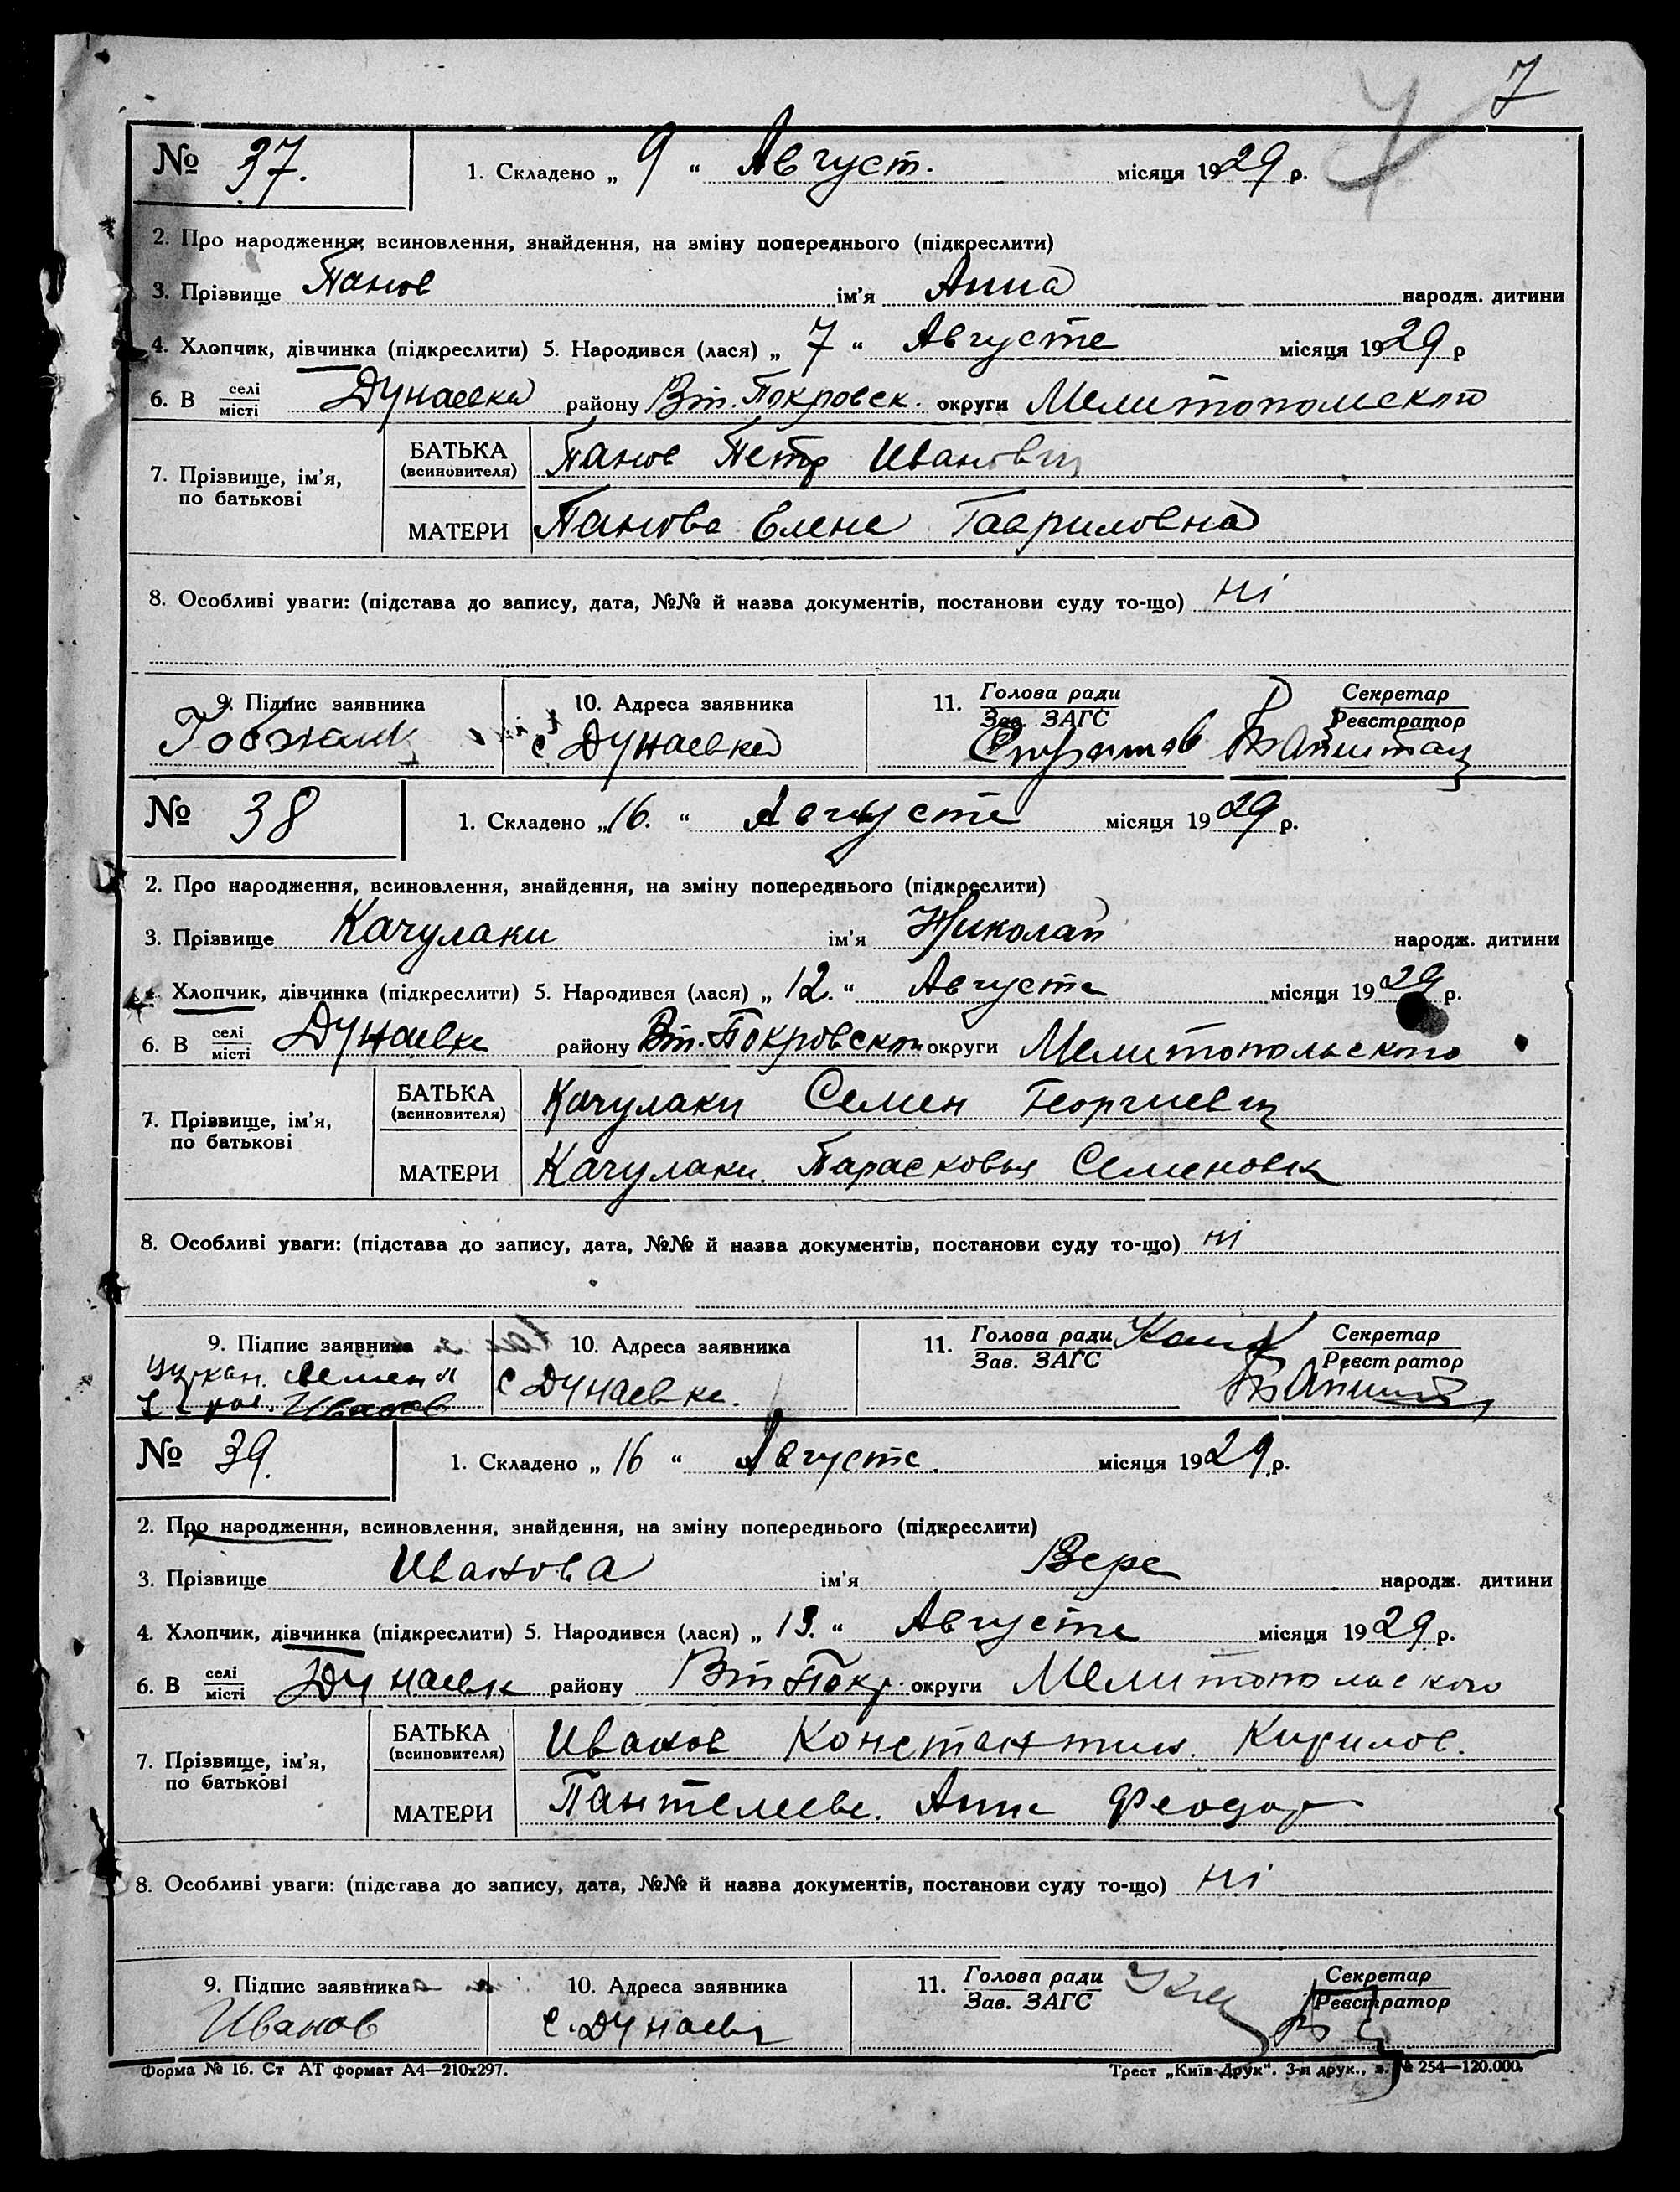 7
7
№ 37. 1. Складено „ 9 “ Август. місяця 1929 р.
2. Про народження, всиновлення, знайдення, на зміну попереднього (підкреслити)
3. Прізвище Панов ім'я Анна народж. дитини
4. Хлопчик, дівчинка (підкреслити) 5. Народився (лася) „ 7 “ Августа місяця 1929 р
6. В селі місті Дунаевка району Вт. Покровск. округи Мелитопольского
7. Прізвище, ім'я, по батькові
БАТЬКА (всиновителя) Панов Петр Иванович
МАТЕРИ Панова Елена Гавриловна
8. Особливі уваги: (підстава до запису, дата, №№ й назва документів, постанови суду то-що) ні
9. Підпис заявника 10. Адреса заявника 11. Голова ради Зав. ЗАГС Секретар Реєстратор
с Дунаевка
№ 38 1. Складено „ 16. “ Августа місяця 1929 р.
2. Про народження, всиновлення, знайдення, на зміну попереднього (підкреслити)
3. Прізвище Качулаки ім'я Николай народж. дитини
4. Хлопчик, дівчинка (підкреслити) 5. Народився (лася) „ 12. “ Августа місяця 1929 р.
6. В селі місті Дунаевка району Вт. Покровского округи Мелитопольского
7. Прізвище, ім'я, по батькові
БАТЬКА (всиновителя) Качулаки Семен Георгиевич
МАТЕРИ Качулаки. Парасковья Семеновна
8. Особливі уваги: (підстава до запису, дата, №№ й назва документів, постанови суду то-що) ні
9. Підпис заявника 10. Адреса заявника 11. Голова ради Зав. ЗАГС Секретар Реєстратор
с Дунаевка.
Иванов
№ 39. 1. Складено „ 16 “ Августа. місяця 1929 р.
2. Про народження, всиновлення, знайдення, на зміну попереднього (підкреслити)
3. Прізвище Иванова ім'я Вера народж. дитини
4. Хлопчик, дівчинка (підкреслити) 5. Народився (лася) „ 13. “ Августа місяця 1929 р.
6. В селі місті Дунаевка району Вт Покр. округи Мелитопольского
7. Прізвище, ім'я, по батькові
БАТЬКА (всиновителя) Иванов Константин. Кирилов.
МАТЕРИ Пантелеева. Анна Феодор
8. Особливі уваги: (підстава до запису, дата, №№ й назва документів, постанови суду то-що) ні
9. Підпис заявника 10. Адреса заявника 11. Голова ради Зав. ЗАГС Секретар Реєстратор
Иванов с. Дунаевка
Форма № 16. Ст АТ формат А4—210х297. Трест „Київ-Друк“. 3-я друк., з. № 254—120.000.